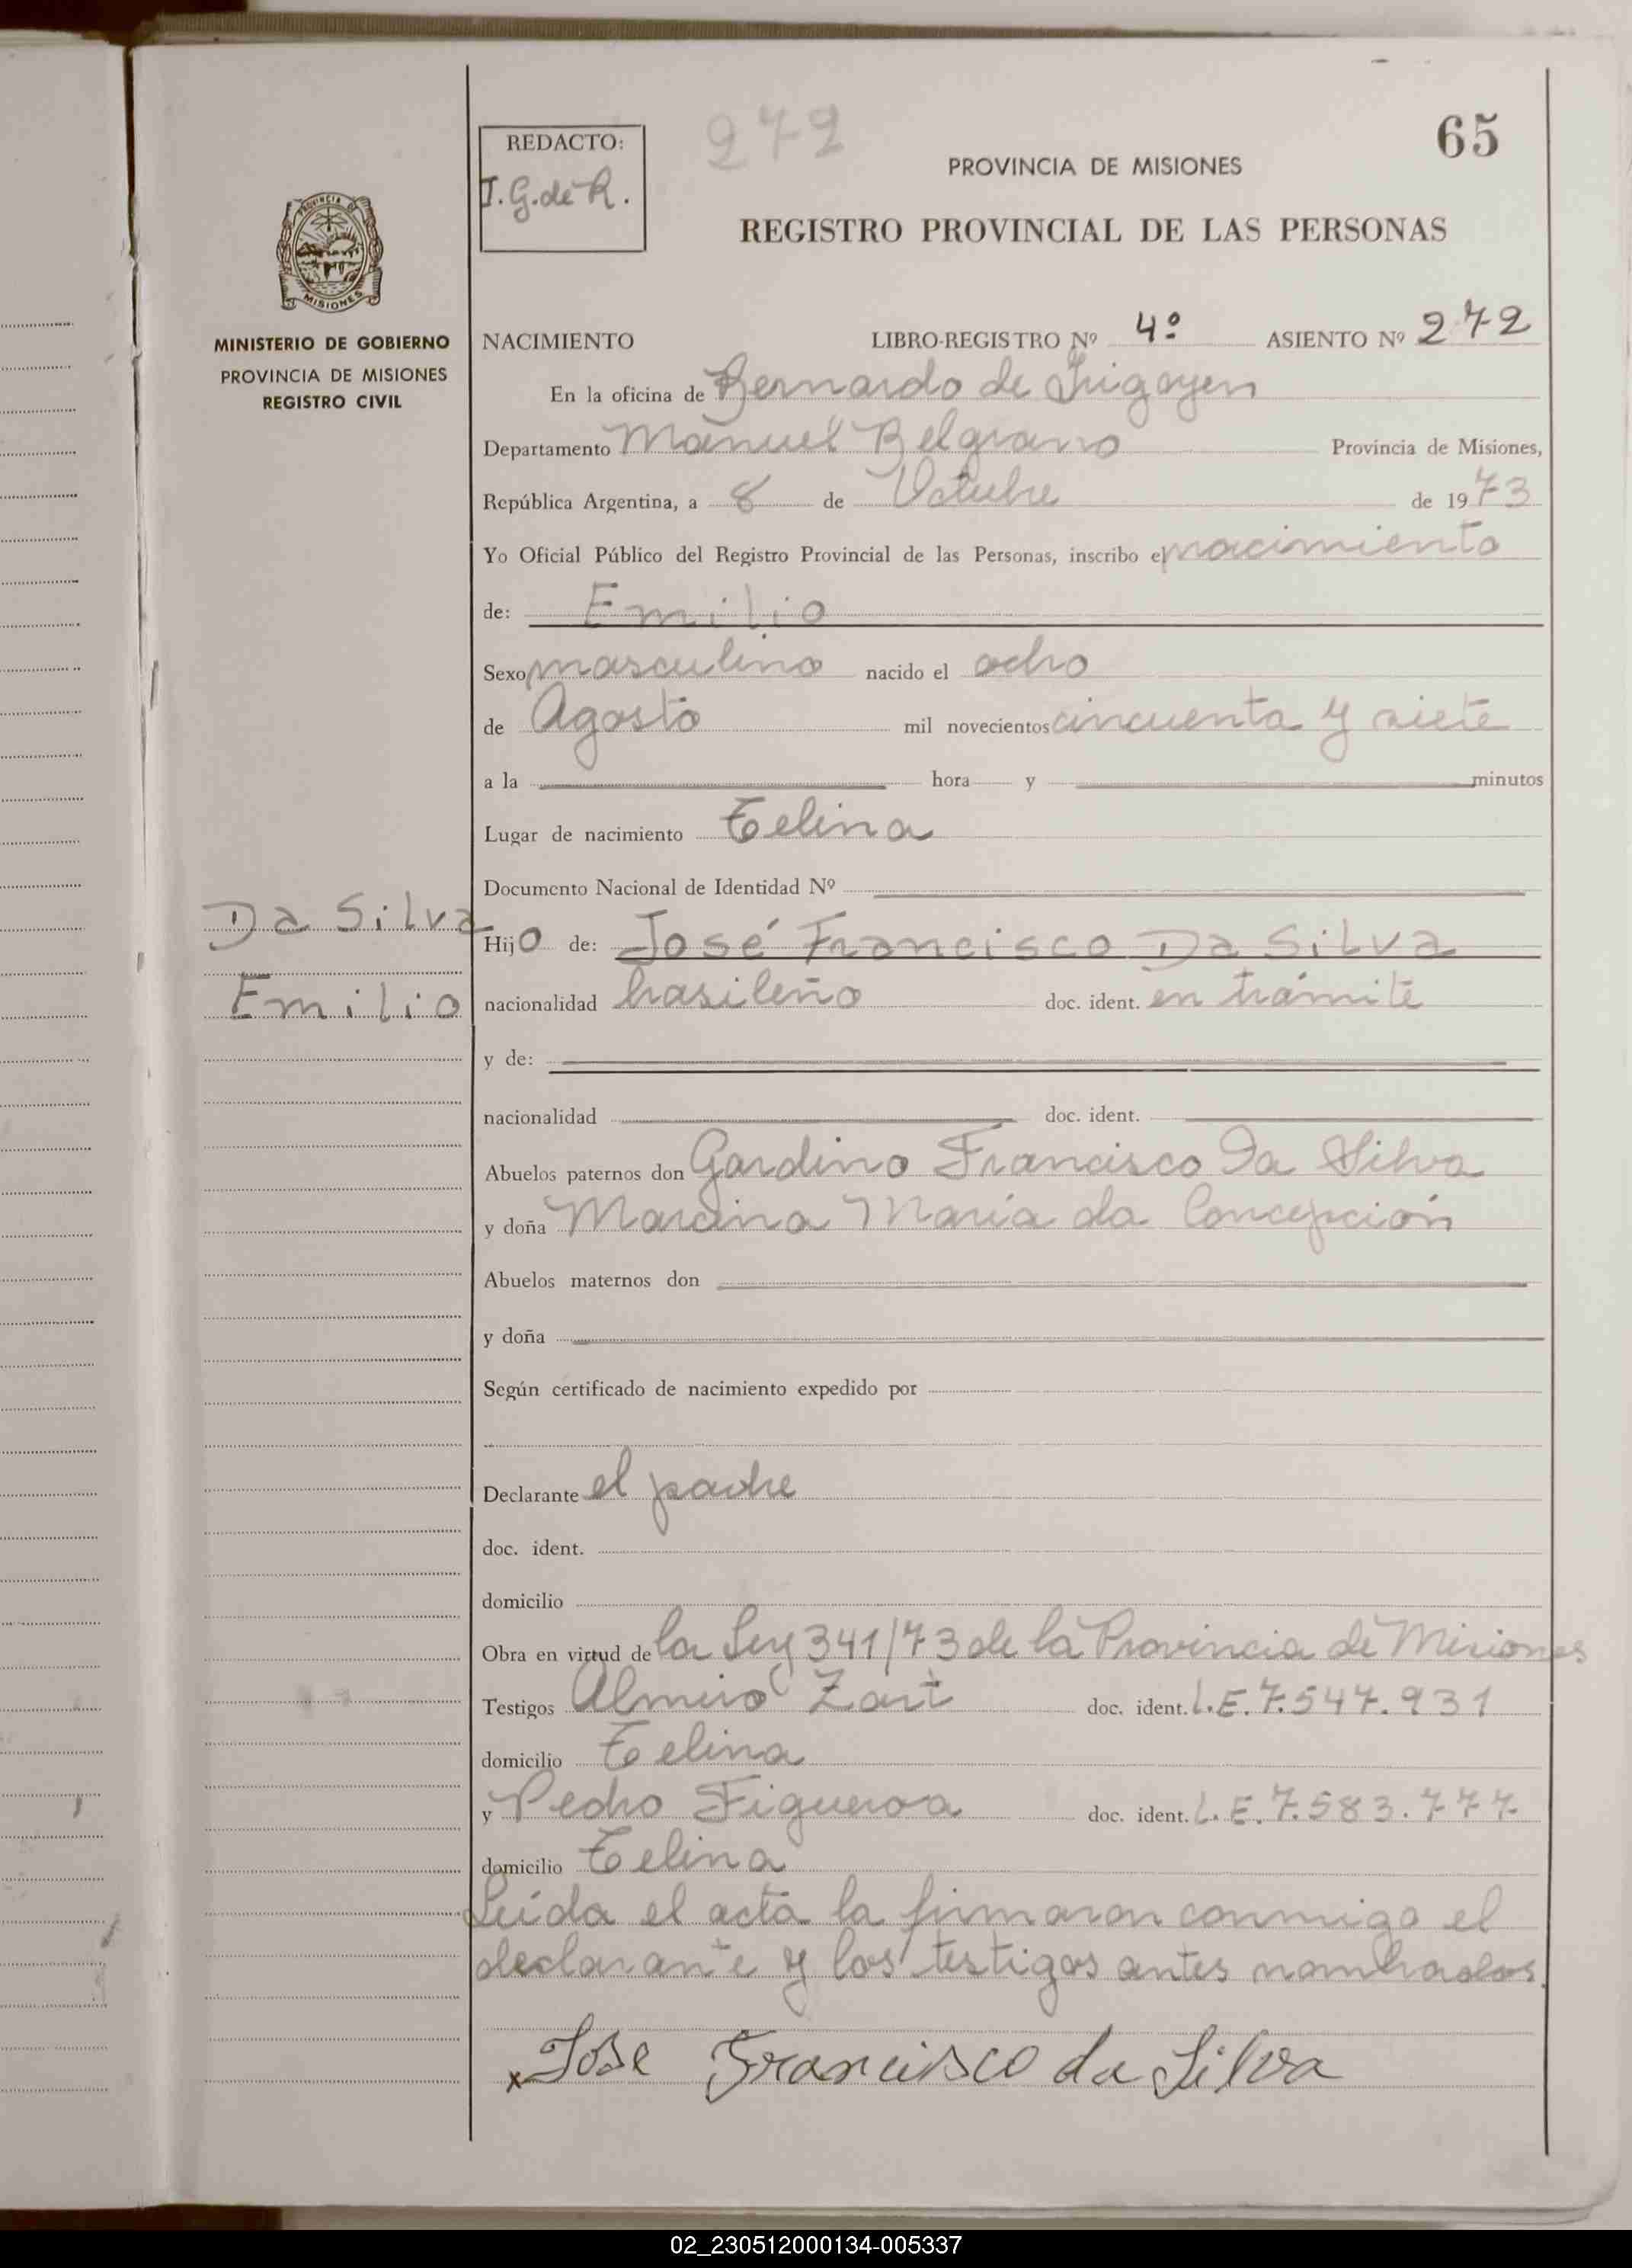 65
REDACTO:
I.G.de R.
272
PROVINCIA DE MISIONES
REGISTRO PROVINCIAL DE LAS PERSONAS
PROVINCIA DE
MISIONES
MINISTERIO DE GOBIERNO
PROVINCIA DE MISIONES
REGISTRO CIVIL
NACIMIENTO LIBRO-REGISTRO Nº 4º ASIENTO Nº 272
En la oficina de Bernardo de Irigoyen
Departamento Manuel Belgrano Provincia de Misiones,
República Argentina, a 8 de Octubre de 1973
Yo Oficial Público del Registro Provincial de las Personas, inscribo el nacimiento
de: Emilio
Sexo masculino nacido el ocho
de Agosto mil novecientos cincuenta y siete
a la hora y minutos
Lugar de nacimiento Celina
Documento Nacional de Identidad Nº
Da Silva
Emilio
Hijo de: José Francisco Da Silva
nacionalidad brasileño doc. ident. en trámite
y de:
nacionalidad doc. ident.
Abuelos paternos don Gardino Francisco Da Silva
y doña Marcina María da Concepción
Abuelos maternos don
y doña
Según certificado de nacimiento expedido por
Declarante el padre
doc. ident.
domicilio
Obra en virtud de la Ley 341/73 de la Provincia de Misiones
Testigos Almiro Zart doc. ident. L.E. 7.547.931
domicilio Celina
y Pedro Figueroa doc. ident. L.E. 7.583.777
domicilio Celina
Leída el acta la firmaron conmigo el
declarante y los testigos antes nombrados.
x Jose Francisco da Silva
02_230512000134-005337